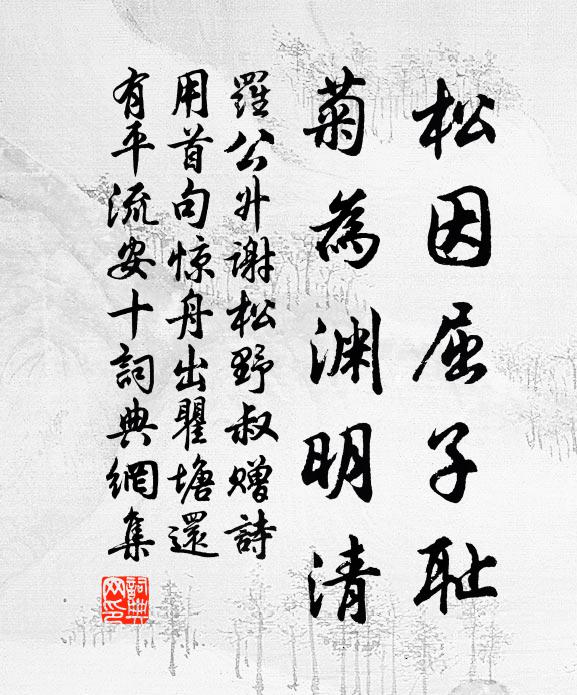 松因屈子耻
菊為渊明清
羅公升谢松野叔赠詩
用首句惊舟出瞿塘還
有平流安十詞典網集
詞典
网印